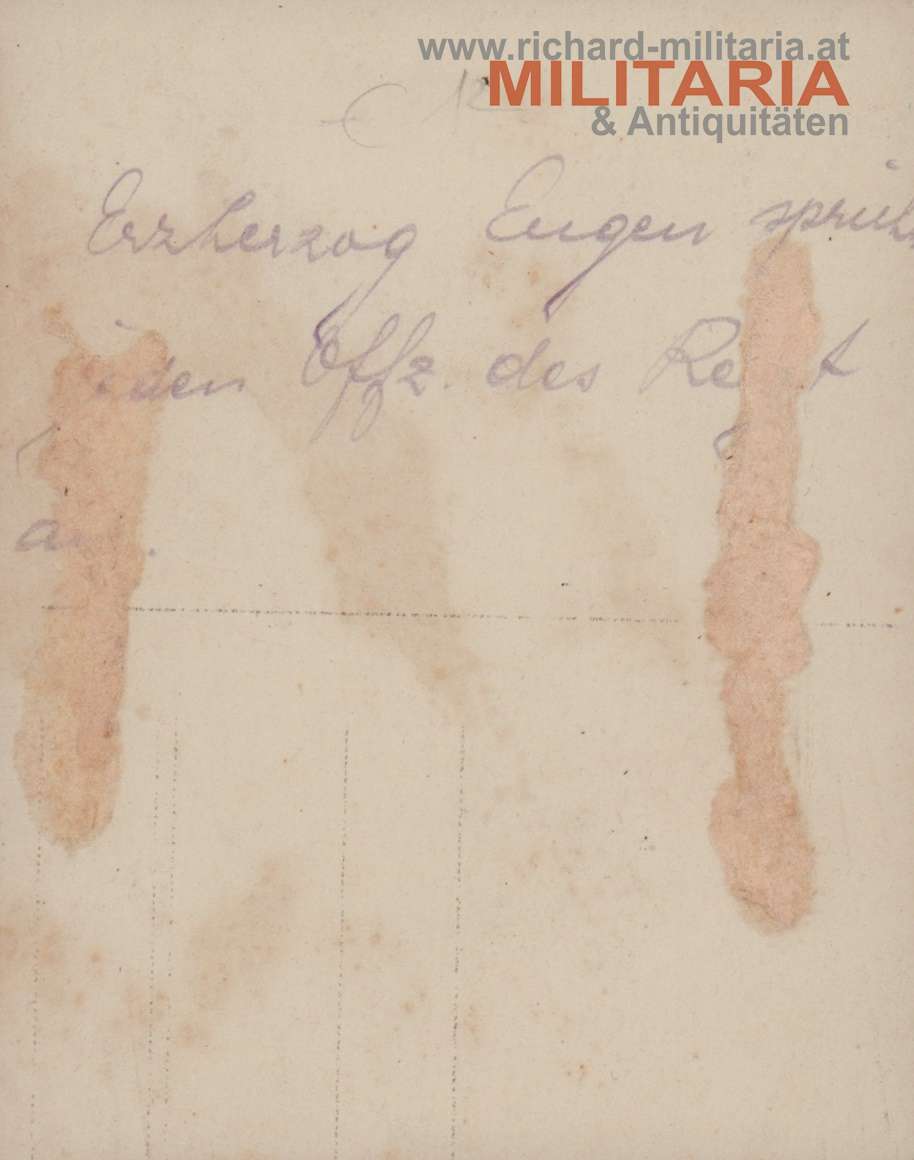 www.richard-militaria.at
MILITARIA
& Antiquitäten
€ 12
Erzherzog Eugen
Offz. des Regt